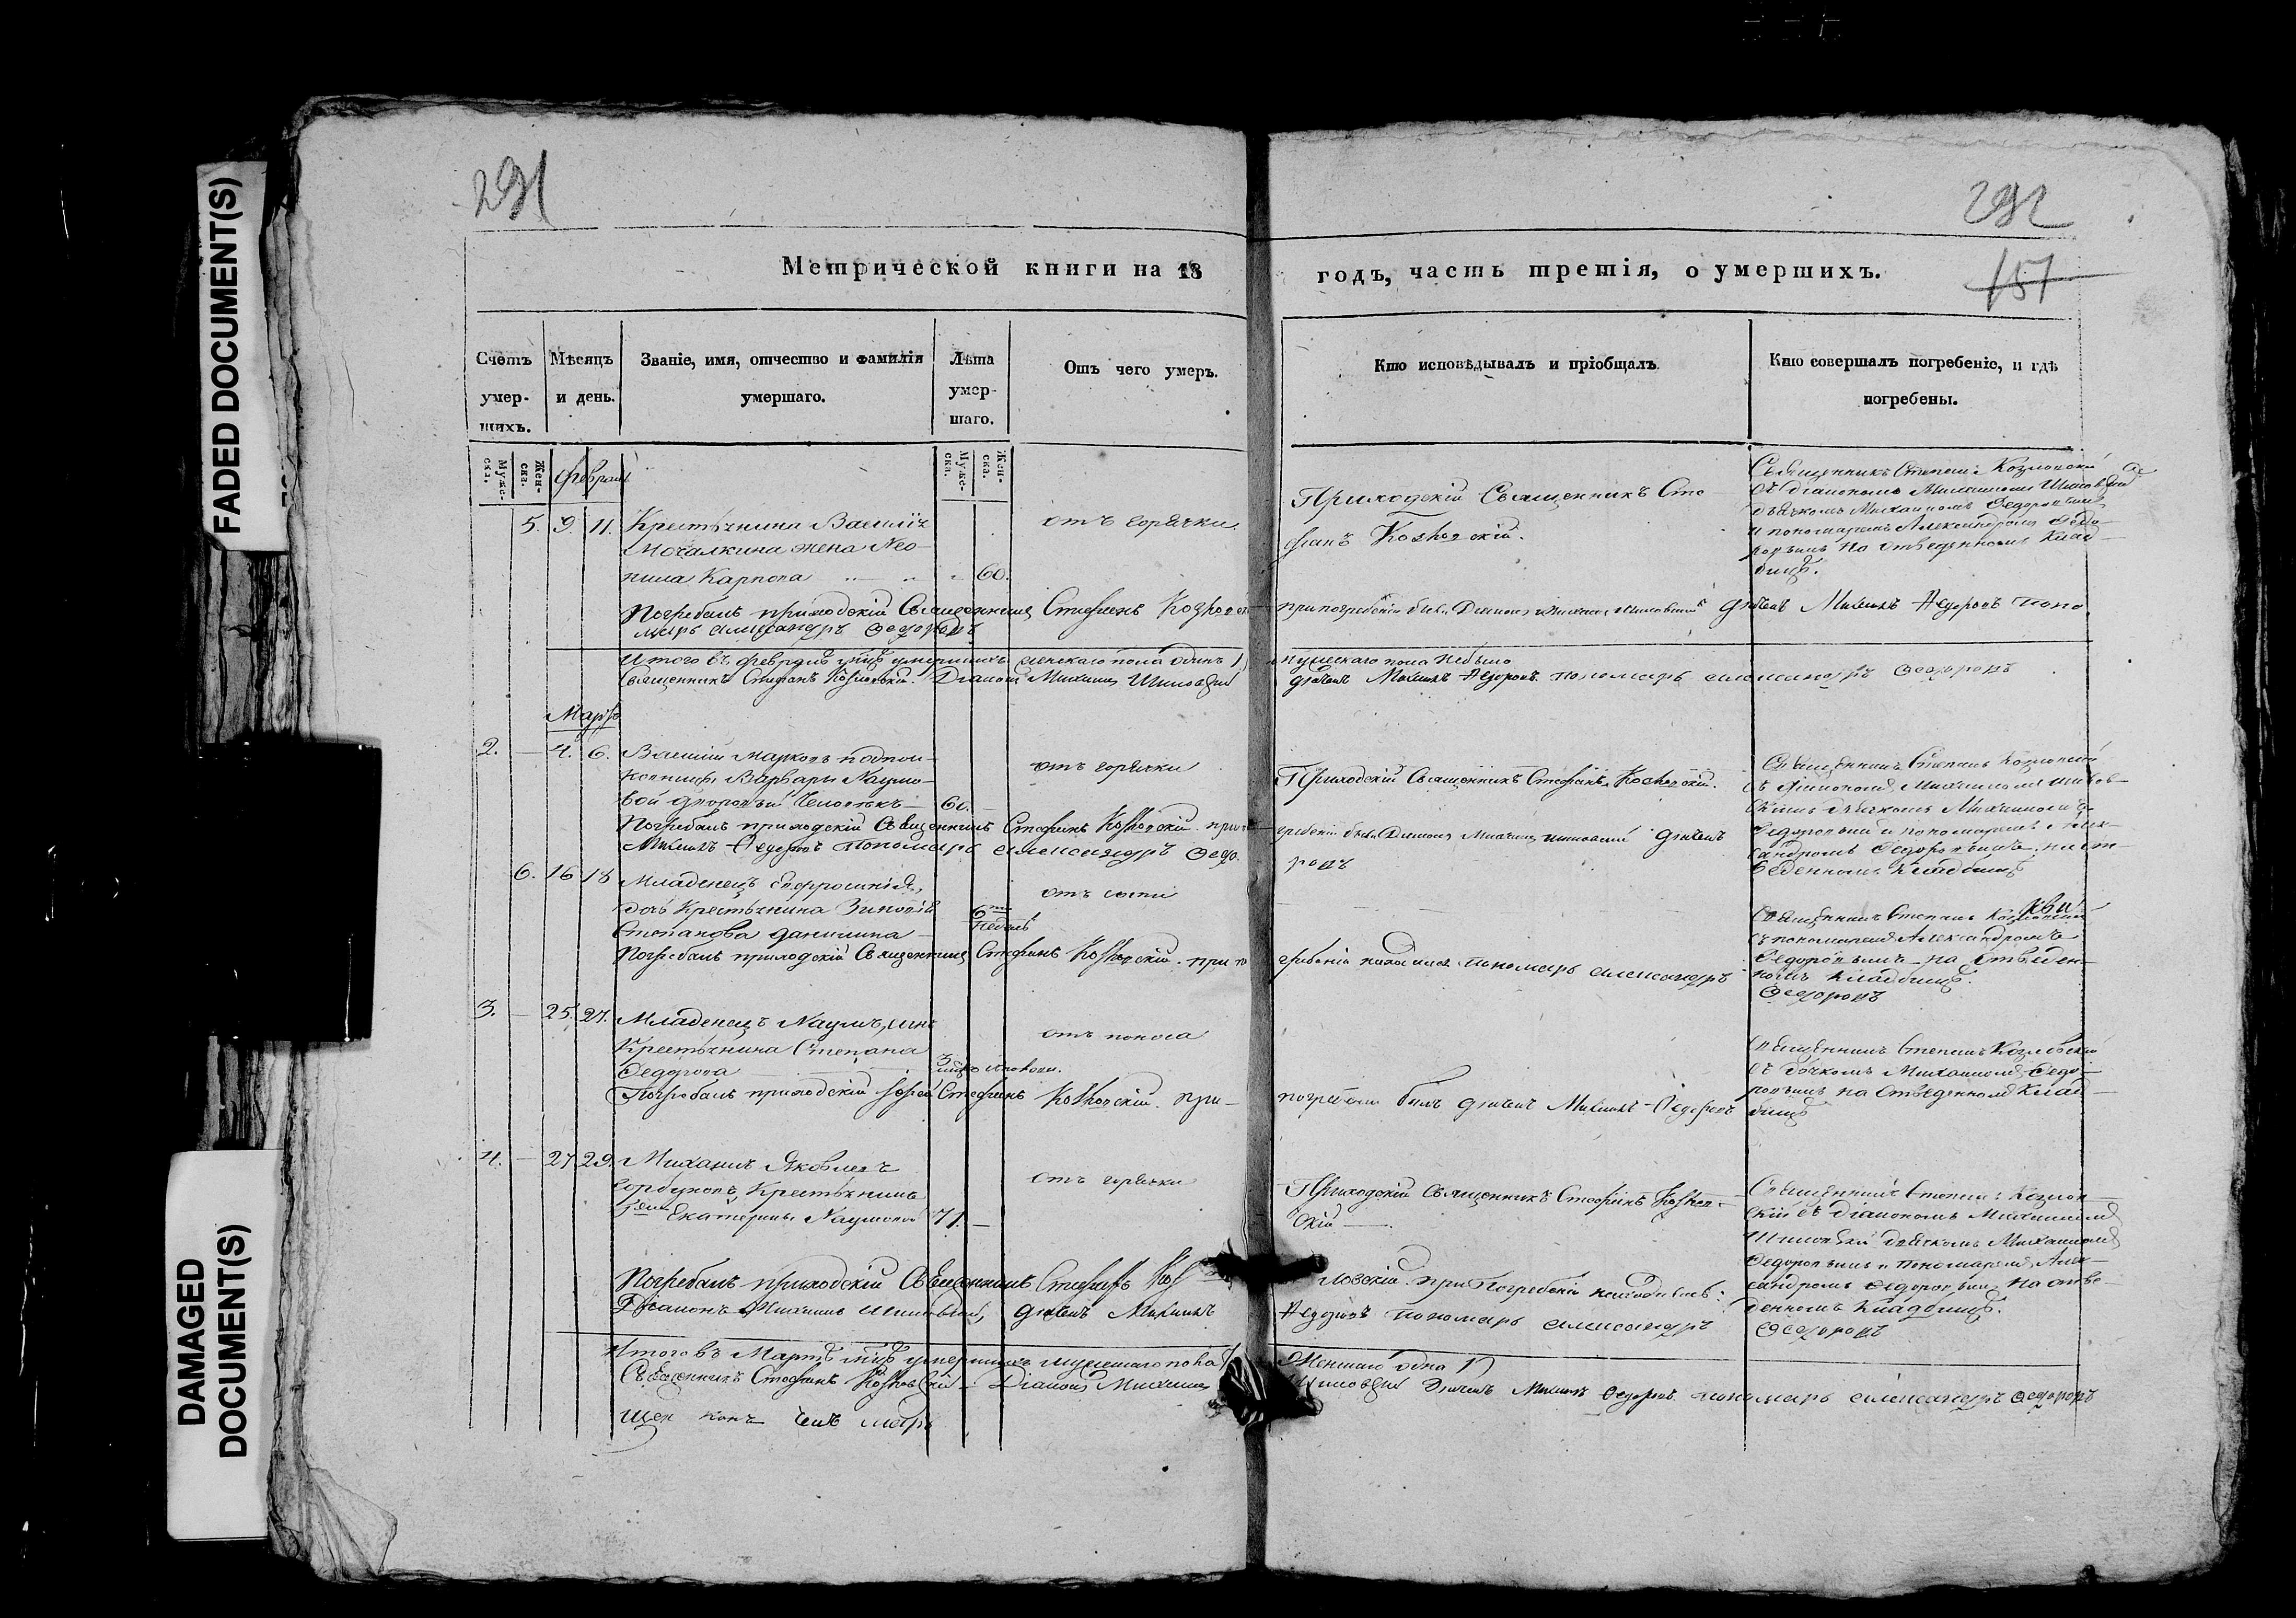 FADED DOCUMENT(S)
DAMAGED
DOCUMENT(S)
291
292
157
Метрической книги на 18
годъ, часть третія, о умершихъ.
Счетъ умер-шихъ.
Мѣсяцъ и день.
Званіе, имя, отчество и фамилія умершаго.
Лѣта умер-шаго.
Отъ чего умеръ.
Кто исповѣдывалъ и пріобщалъ
Кто совершалъ погребеніе, и гдѣ погребены.
Муже-ска.
Жен-ска.
Муже-ска.
Жен-ска.
Февраль
5. 9. 11. Крестьянина Василія
Мочалкина жена Нео-
нила Карпова 60.
отъ горячки
Приходскій Священникъ Сте-
фанъ Козловскій.
Священникъ Стефанъ Козловскій
съ діакономъ Михаиломъ
дьячкомъ Михаиломъ Федоровымъ
и пономаремъ Александромъ Федо-
ровымъ на отведенномъ клад-
бищѣ.
Погребалъ приходскій Священникъ Стефанъ
при погребеніи были Діаконъ Михаилъ дьячекъ Михаилъ Федоровъ Поно
марь Александръ Федоровъ
Итого въ Февралѣ мцѣ умершихъ женскаго пола одинъ 1)
мужескаго пола небыло
Священникъ Стефанъ Козловскій. Діаконъ Михаилъ
дьячекъ Михаилъ Федоровъ. пономарь Александръ Федоровъ
Мартъ
2. — 4. 6. Василій Марковъ подпол-
ковницы Варвары Наумо-
вой дворовый человѣкъ — 60. —
отъ горячки
Приходскій Священникъ Стефанъ Козловскій.
Священникъ Стефанъ Козловскій
съ діакономъ Михаиломъ
дьячкомъ Михаиломъ
Федоровымъ и пономаремъ Алек-
сандромъ Федоровымъ на от-
веденномъ кладбищѣ
Погребалъ приходскій Священникъ Стефанъ Козловскій. при по
гребеніи были Діаконъ Михаилъ дьячекъ
Михаилъ Федоровъ Пономарь Александръ Федо
ровъ
6. 16 18 Младенецъ Евфросинія,
дочь Крестьянина Зиновія
Степанова
6ти недель
отъ оспы
Священникъ Стефанъ Козловскій
съ пономаремъ Александромъ
Федоровымъ на отведен-
номъ кладбищѣ.
Погребалъ приходскій Священникъ Стефанъ Козловскій. при по
гребеніи находился пономарь Александръ
Федоровъ
3. — 25. 27. Младенецъ Наумъ, сынъ
Крестьянина Степана
Федорова
отъ поноса
Священникъ Стефанъ Козловскій
съ дьячкомъ Михаиломъ Федо-
ровымъ на отведенномъ клад-
бищѣ
Погребалъ приходскій Іерей Стефанъ Козловскій. При-
погребеніи былъ дьячекъ Михаилъ Федоровъ
4. — 27 29. Михаилъ Яковлевъ
Горбуновъ, Крестьянинъ
Екатерины Наумовой 71. —
отъ горячки
Приходскій Священникъ Стефанъ Козлов-
скій
Священникъ Стефанъ Козлов-
скій съ діакономъ Михаиломъ
дьячкомъ Михаиломъ
Федоровымъ и пономаремъ Алек-
сандромъ Федоровымъ на отве-
денномъ кладбищѣ.
Погребалъ приходскій Священникъ Стефанъ Коз
ловскій. при погребеніи находились:
Діаконъ Михаилъ дьячекъ Михаилъ
Федоровъ пономарь Александръ
Федоровъ
Итого въ Мартѣ мцѣ умершихъ мужескаго пола
Женскаго одна 1)
Священникъ Стефанъ Козловскій Діаконъ Михаилъ
дьячекъ Михаилъ Федоровъ. пономарь Александръ Федоровъ